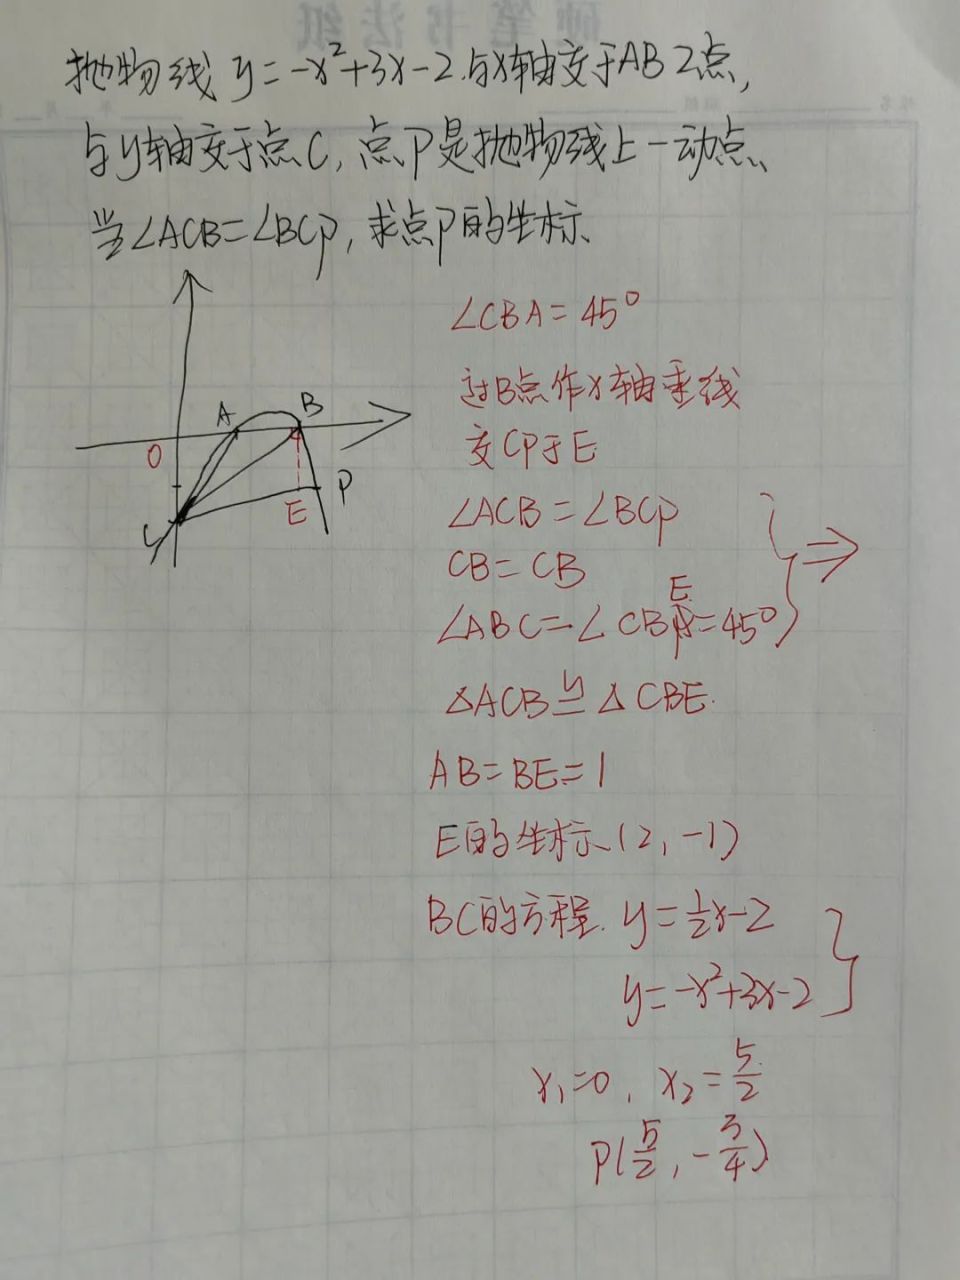 硬笔书法纸
抛物线 y=-x²+3x-2与x轴交于AB 2点,
与y轴交于点C, 点P是抛物线上一动点、
当∠ACB=∠BCP, 求点P的坐标、
A
B
O
P
E
C
∠CBA=45°
过B点作x轴垂线
交CP于E
∠ACB=∠BCP
CB=CB
∠ABC=∠CBE=45° ⇒
△ACB≌△CBE.
AB=BE=1
E的坐标、(2,-1)
BC的方程. y=½x-2
y=-x²+3x-2
x₁=0, x₂=5/2
P(5/2,-3/4)